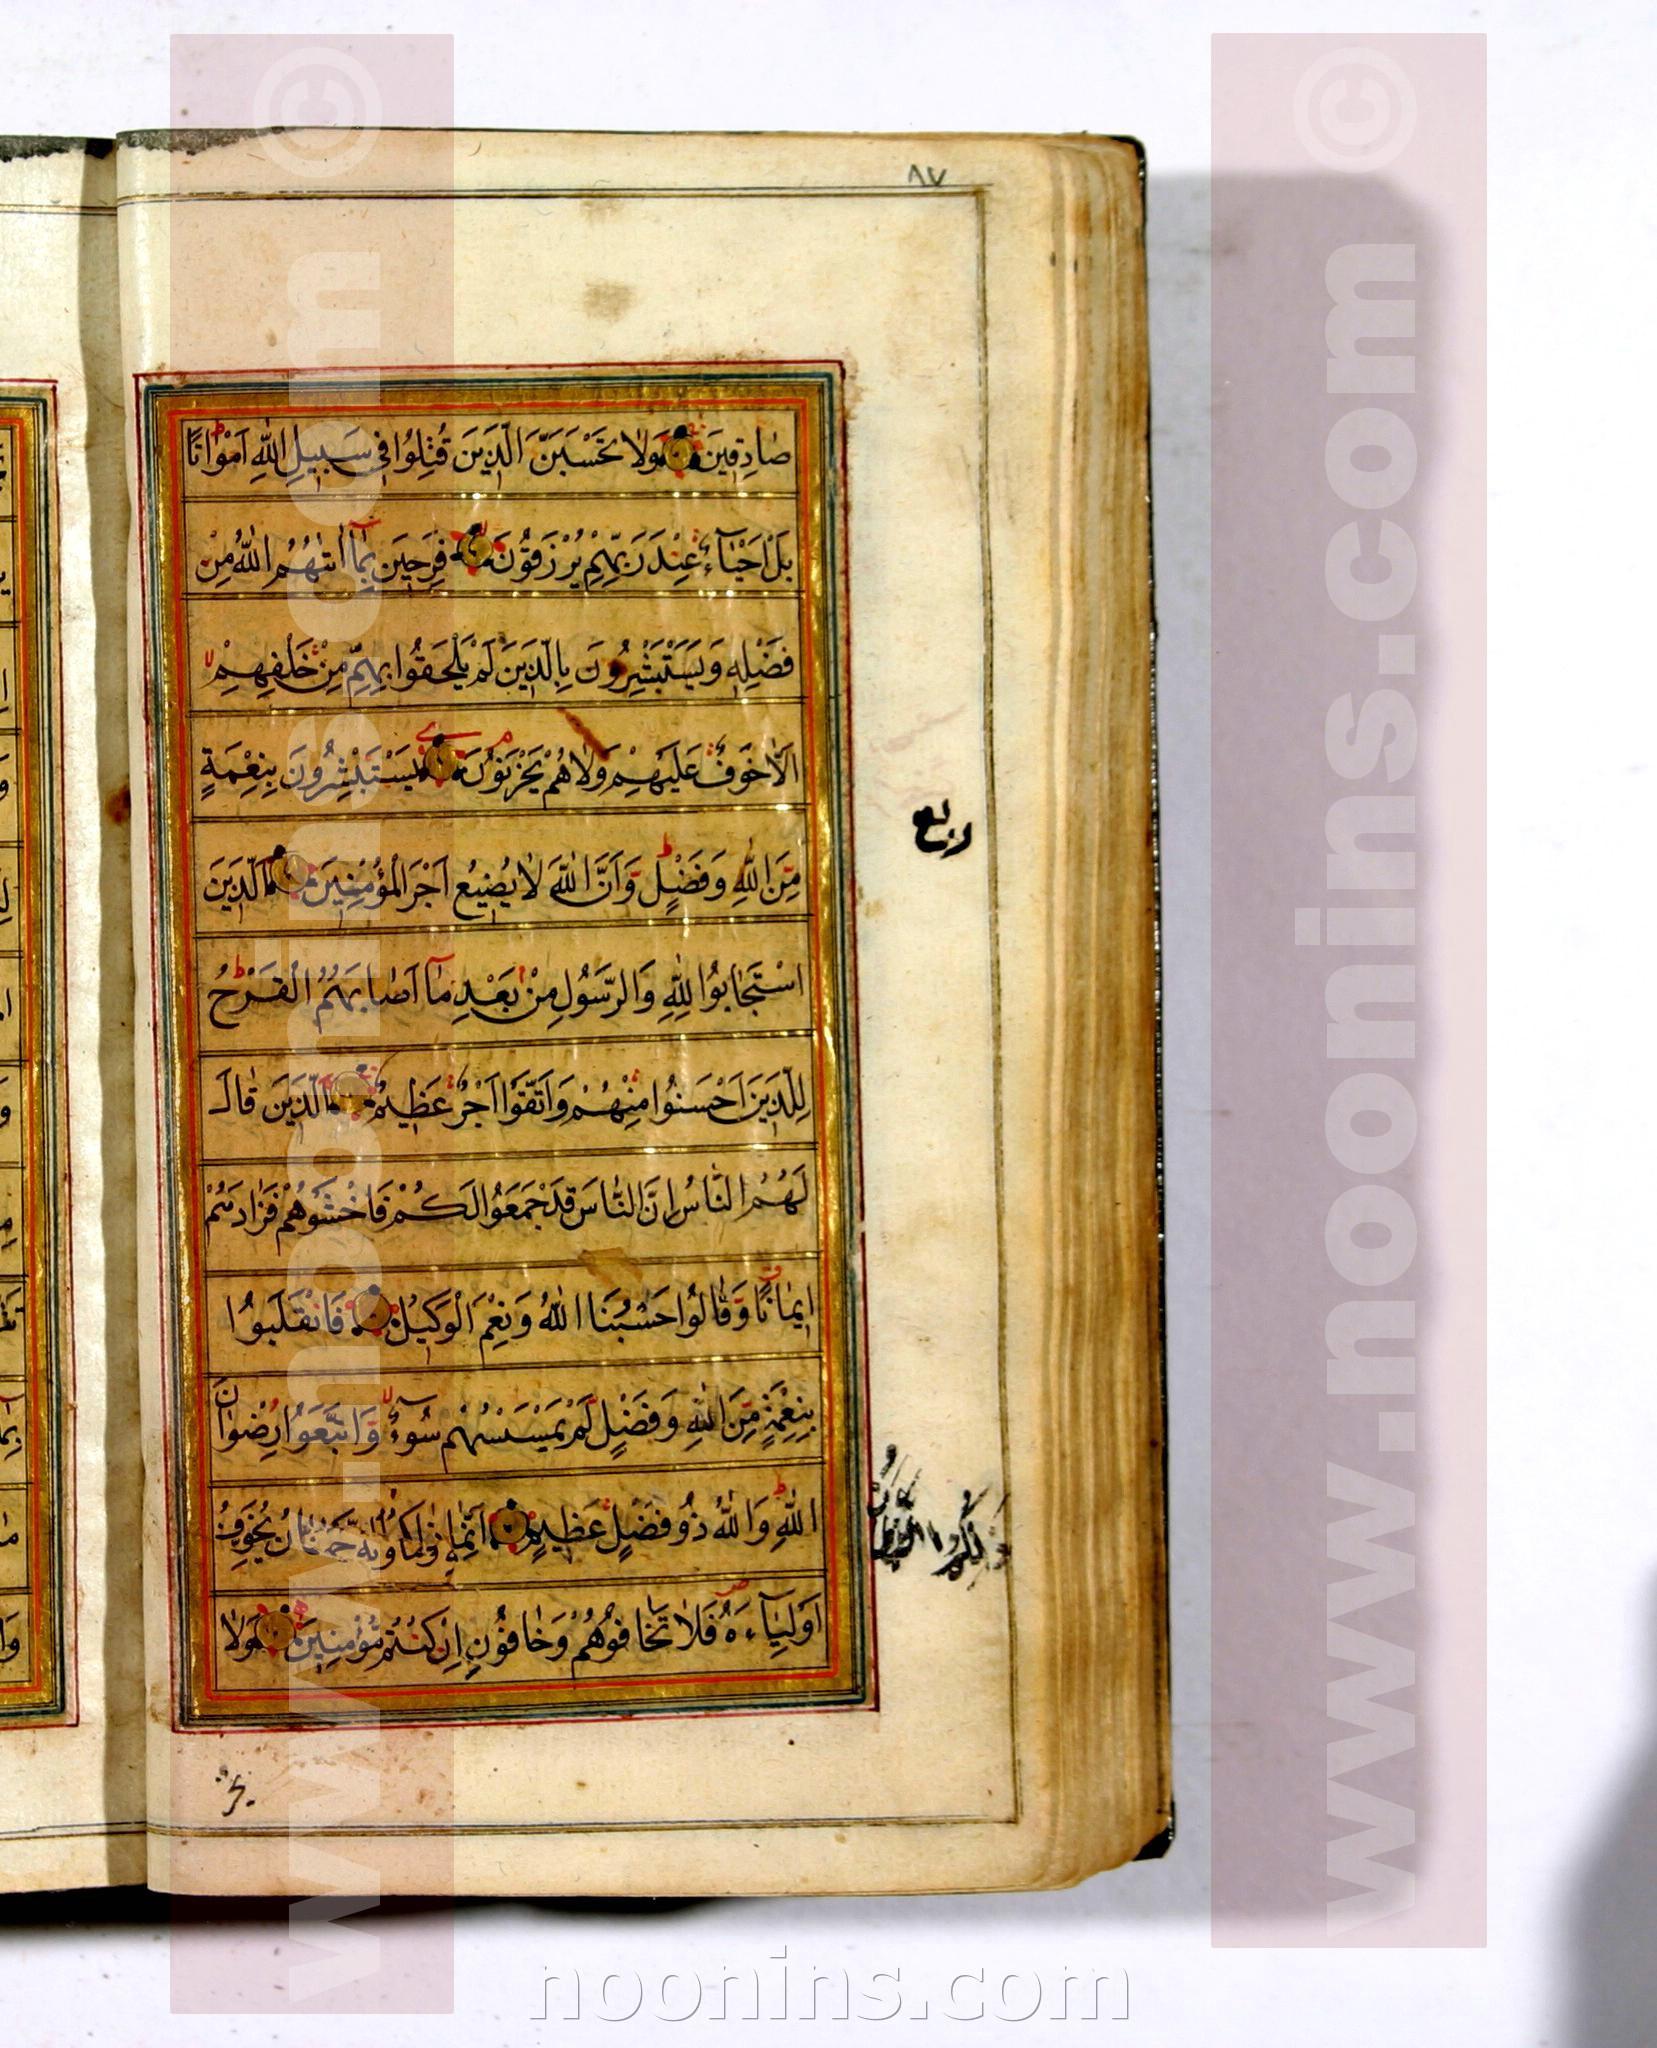 ۸۷
صَادِقِينَ وَلَا تَحْسَبَنَّ الَّذِينَ قُتِلُوا فِي سَبِيلِ اللَّهِ اَمْوَاتًا
بَلْ اَحْيَآءٌ عِنْدَ رَبِّهِمْ يُرْزَقُونَ فَرِحِينَ بِمَآ اٰتٰهُمُ اللّٰهُ مِنْ
فَضْلِهٖ وَيَسْتَبْشِرُونَ بِالَّذِينَ لَمْ يَلْحَقُوا بِهِمْ مِنْ خَلْفِهِمْ
اَلَّا خَوْفٌ عَلَيْهِمْ وَلَا هُمْ يَحْزَنُونَ يَسْتَبْشِرُونَ بِنِعْمَةٍ
مِنَ اللّٰهِ وَفَضْلٍ وَاَنَّ اللّٰهَ لَا يُضِيعُ اَجْرَ الْمُؤْمِنِينَ اَلَّذِينَ
اسْتَجَابُوا لِلّٰهِ وَالرَّسُولِ مِنْ بَعْدِ مَآ اَصَابَهُمُ الْقَرْحُ
لِلَّذِينَ اَحْسَنُوا مِنْهُمْ وَاتَّقَوْا اَجْرٌ عَظِيمٌ اَلَّذِينَ قَالَ
لَهُمُ النَّاسُ اِنَّ النَّاسَ قَدْ جَمَعُوا لَكُمْ فَاخْشَوْهُمْ فَزَادَهُمْ
اِيمَانًا وَقَالُوا حَسْبُنَا اللّٰهُ وَنِعْمَ الْوَكِيلُ فَانْقَلَبُوا
بِنِعْمَةٍ مِنَ اللّٰهِ وَفَضْلٍ لَمْ يَمْسَسْهُمْ سُوٓءٌ وَاتَّبَعُوا رِضْوَانَ
اللّٰهِ وَاللّٰهُ ذُو فَضْلٍ عَظِيمٍ
اَوْلِيَآءَهُ فَلَا تَخَافُوهُمْ وَخَافُونِ اِنْ كُنْتُمْ مُؤْمِنِينَ وَلَا
ربع
www.noonins.com ©
www.noonins.com ©
noonins.com